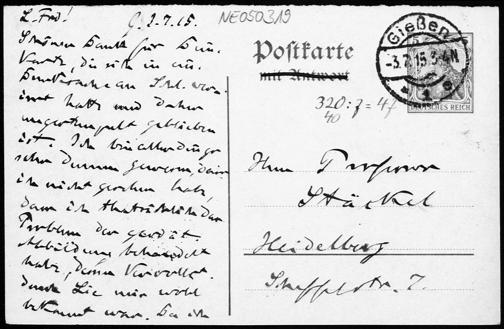 L. Frd! G. 2.7.15.
NE050319
Schönen Dank für Ihre
Karte, die sich in
Drucksache an Schl.
hatte und daher
ungestempelt geblieben
ist. Ich bin allerdings
schon dumm gewesen, dass
ich nicht gesehen habe,
dass ich thatsächlich das
Problem der
Abbildung behandelt
habe, dessen
durch Sie mir wohl
bekannt war. Da ich
Postkarte
mit Antwort
Gießen
-3.7.15.3-4N
* 1 e
DEUTSCHES REICH
320:7=47
40
Herrn Professor
Stäckel
Heidelberg
Scheffelstr. 7.